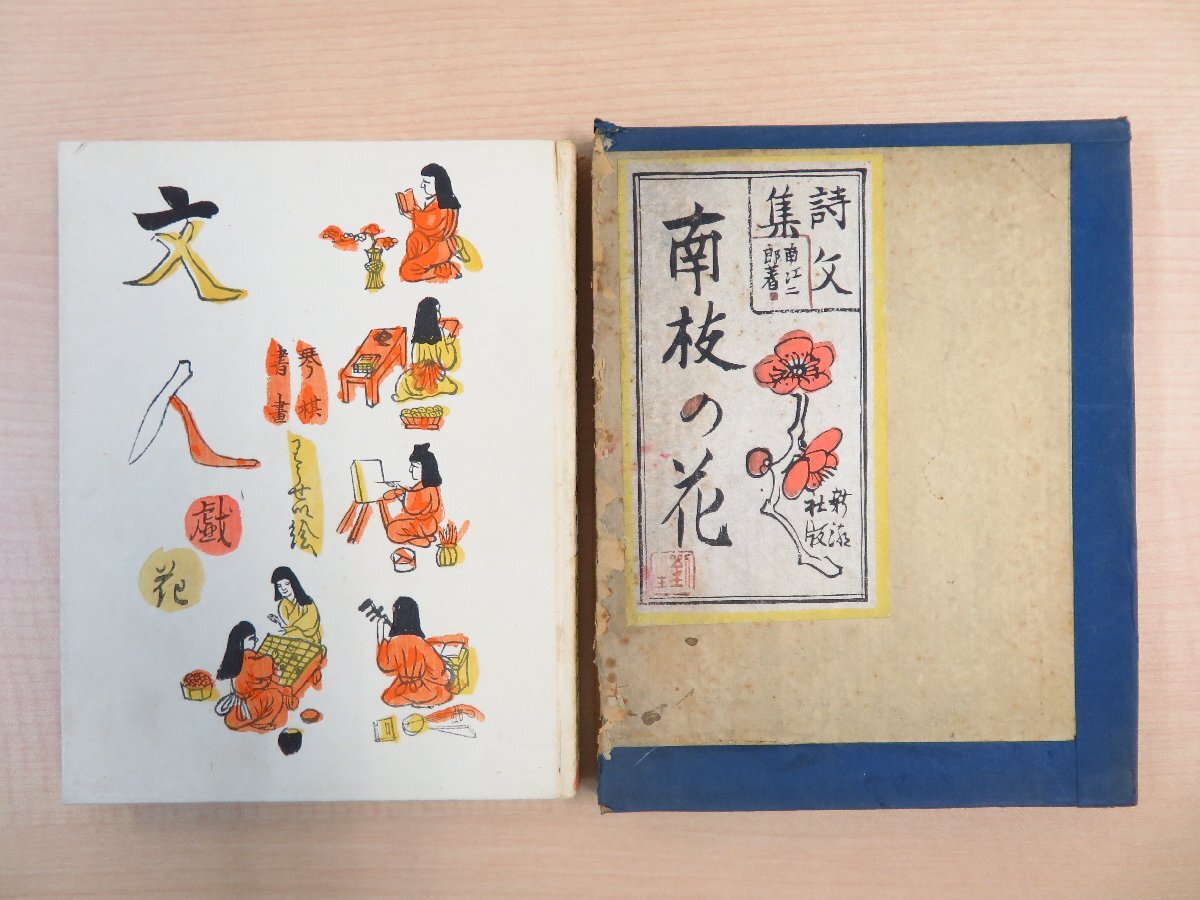 文人
戯
花
琴棋
書畫
わらせの絵
詩文
集
南江二
郎著
南枝の花
新潮
社版